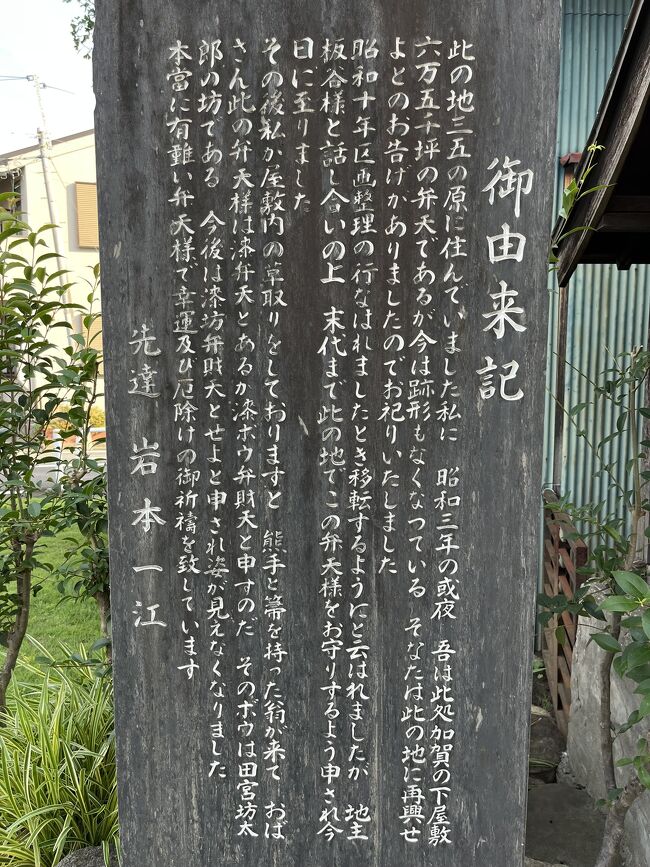 御由来記
此の地三五の原に住んでいました私に　昭和三年の或夜　吾は此処加賀の下屋敷
六万五千坪の弁天であるが今は跡形もなくなつている　そなたは此の地に再興せ
よとのお告げがありましたのでお祀りいたしました
昭和十年区画整理の行なはれましたとき移転するようにと云はれましたが　地主
板谷様と話し合いの上　末代まで此の地でこの弁天様をお守りするよう申され今
日に至りました
その後私か屋敷内の草取りをしておりますと　熊手と箒を持った翁が来て　おば
さん此の弁天様は漆弁天とあるか漆ボウ弁財天と申すのだ　そのボウは田宮坊太
郎の坊である　今後は漆坊弁財天とせよと申され姿が見えなくなりました
本當に有難い弁天様で幸運及び厄除けの御祈禱を致しています
先達　岩本一江